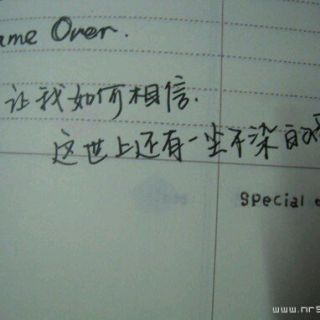 ame Over.
让我如何相信.
这世上还有一尘不染的
Special
www.nrs